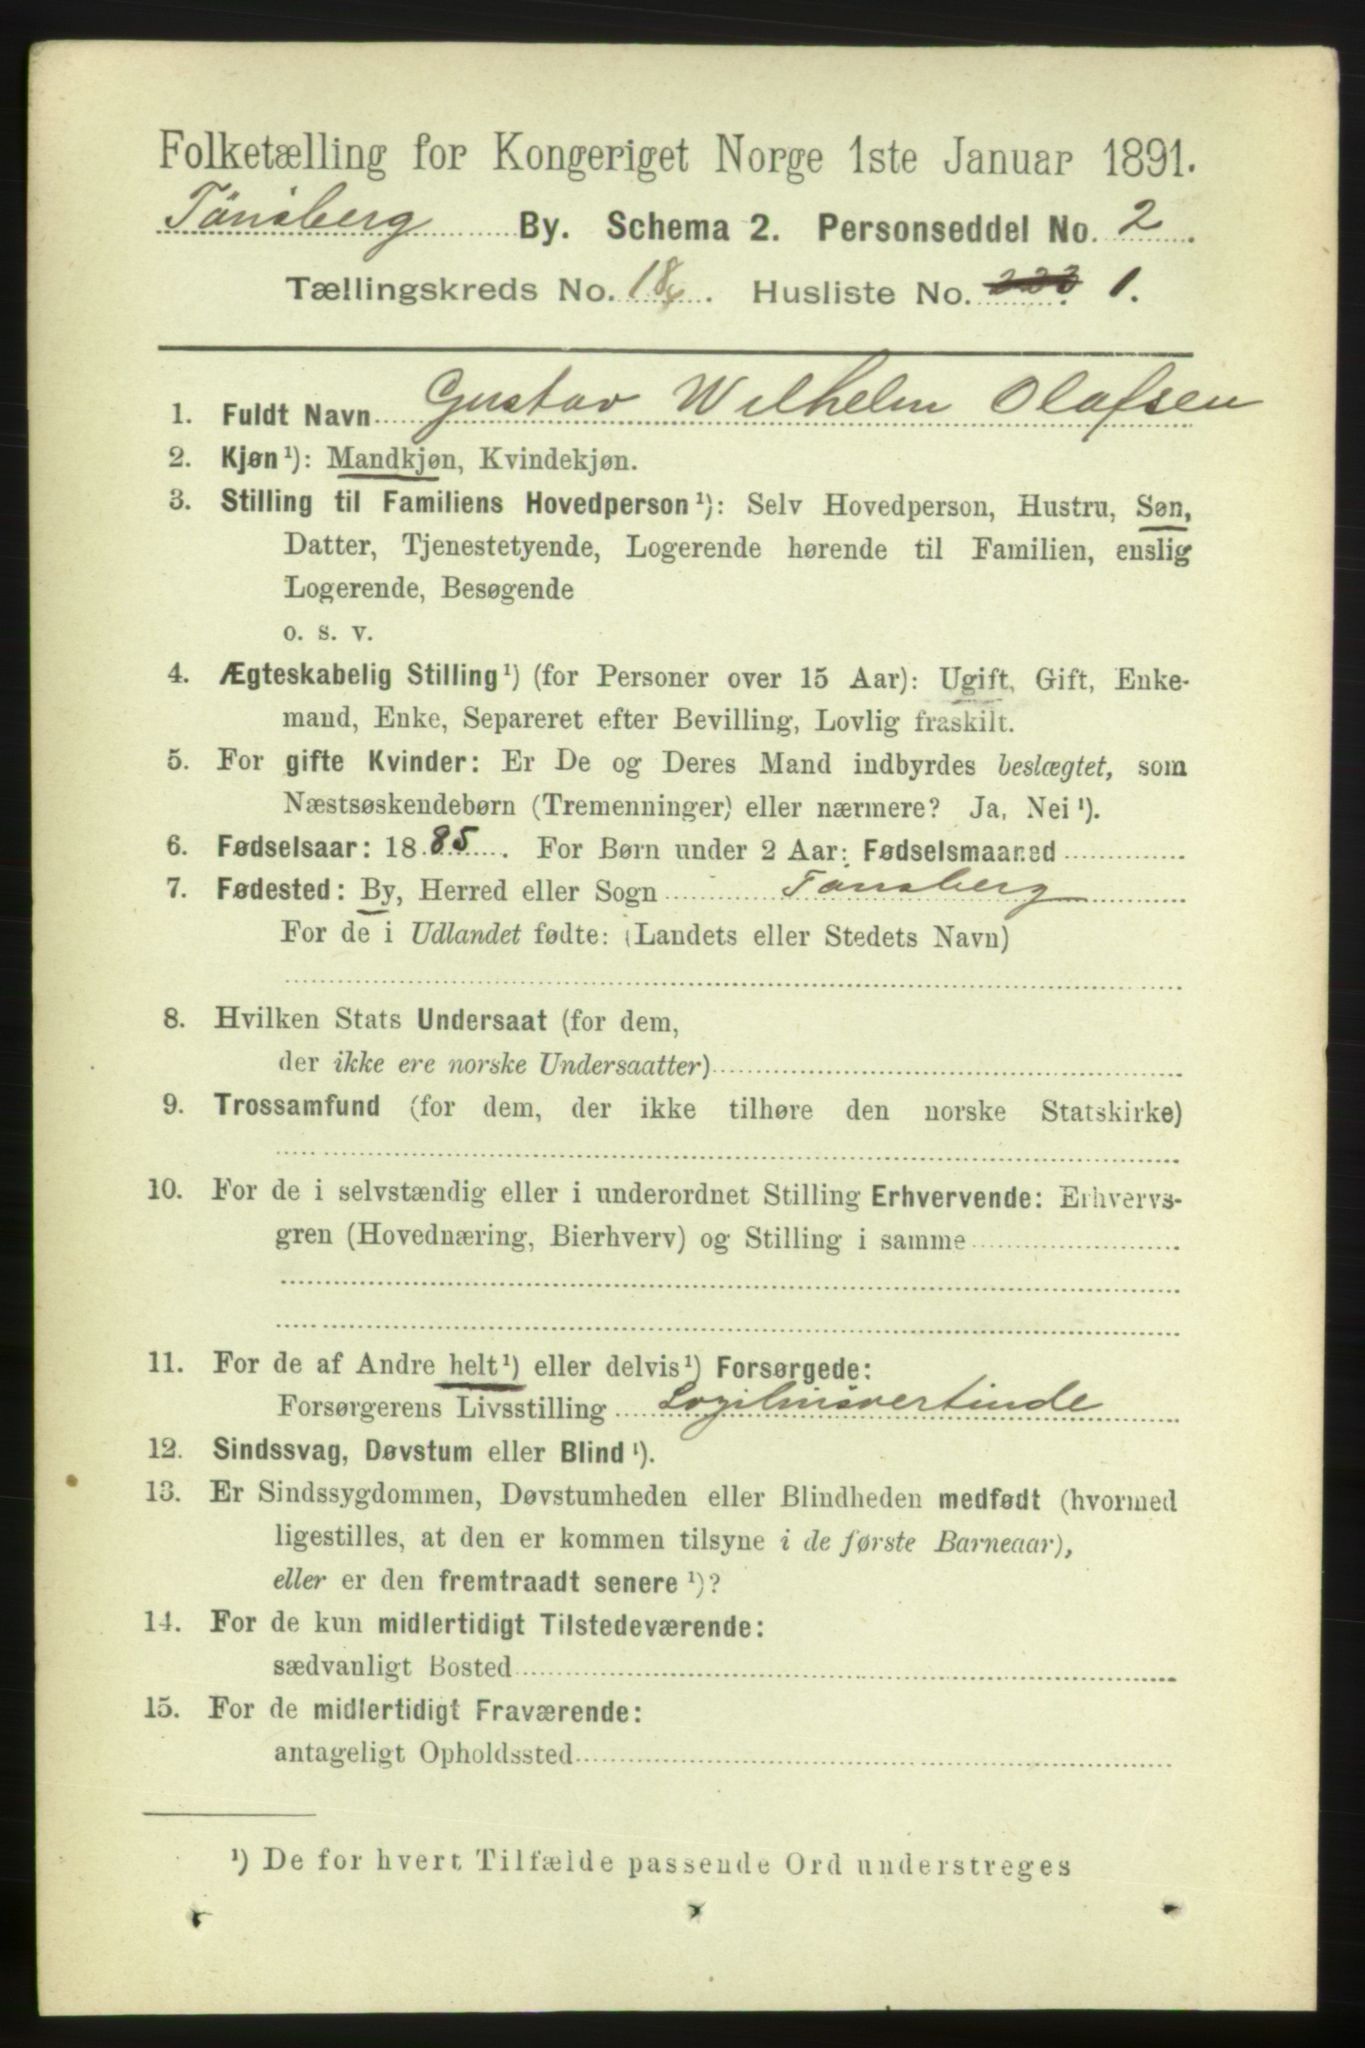 Folketælling for Kongeriget Norge 1ste Januar 1891.
Tønsberg By. Schema 2. Personseddel No. 2
Tællingskreds No. 18. Husliste No. 1.
1. Fuldt Navn Gustav Wilhelm Olafsen
2. Kjøn ¹): Mandkjøn, Kvindekjøn.
3. Stilling til Familiens Hovedperson ¹): Selv Hovedperson, Hustru, Søn,
Datter, Tjenestetyende, Logerende hørende til Familien, enslig
Logerende, Besøgende
o. s. v.
4. Ægteskabelig Stilling ¹) (for Personer over 15 Aar): Ugift, Gift, Enke-
mand, Enke, Separeret efter Bevilling, Lovlig fraskilt.
5. For gifte Kvinder: Er De og Deres Mand indbyrdes beslægtet, som
Næstsøskendebørn (Tremenninger) eller nærmere? Ja, Nei ¹).
6. Fødselsaar: 1885. For Børn under 2 Aar: Fødselsmaaned
7. Fødested: By, Herred eller Sogn Tønsberg
For de i Udlandet fødte: (Landets eller Stedets Navn)
8. Hvilken Stats Undersaat (for dem,
der ikke ere norske Undersaatter)
9. Trossamfund (for dem, der ikke tilhøre den norske Statskirke)
10. For de i selvstændig eller i underordnet Stilling Erhvervende: Erhvervs-
gren (Hovednæring, Bierhverv) og Stilling i samme
11. For de af Andre helt ¹) eller delvis ¹) Forsørgede:
Forsørgerens Livsstilling Logihusvertinde
12. Sindssvag, Døvstum eller Blind ¹).
13. Er Sindssygdommen, Døvstumheden eller Blindheden medfødt (hvormed
ligestilles, at den er kommen tilsyne i de første Barneaar),
eller er den fremtraadt senere ¹)?
14. For de kun midlertidigt Tilstedeværende:
sædvanligt Bosted
15. For de midlertidigt Fraværende:
antageligt Opholdssted
¹) De for hvert Tilfælde passende Ord understreges